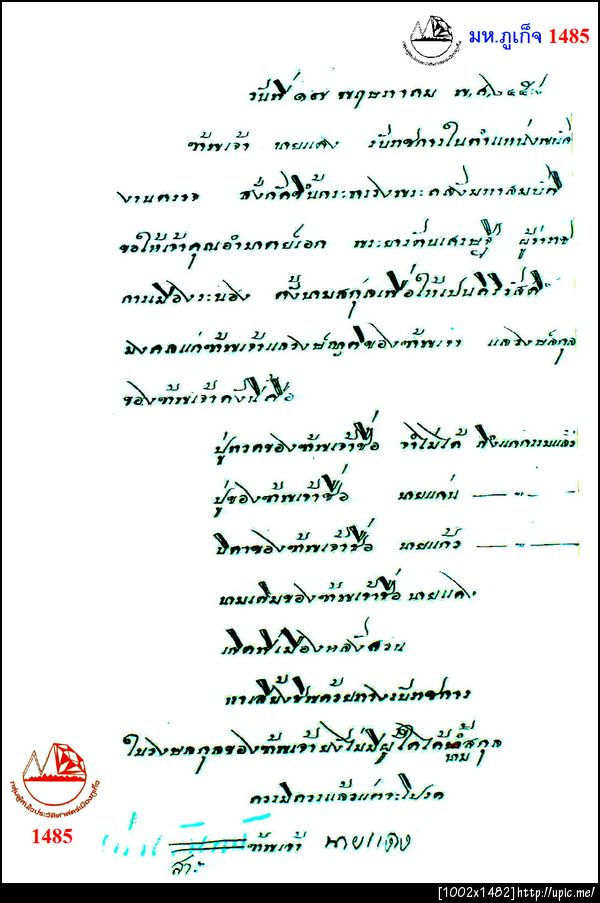 มห.ภูเก็จ 1485
วันที่ ๑๗ พฤษภาคม พ,ศ,๒๔๕๘
ข้าพเจ้า นายแดง รับราชการในตำแหน่งพนัก
งานตรวจ สังกัดขึ้นกระทรวงพระคลังมหาสมบัติ
ขอให้เจ้าคุณอำมาตย์เอก พระยารัตนเศรษฐี ผู้ว่าราช
การเมืองระนอง ตั้งนามสกุลเพื่อให้เปนศิริสวัสดิ
มงคลแก่ข้าพเจ้าแลวงษ์ญาติของข้าพเจ้า แลวงษ์สกุล
ของข้าพเจ้าดังนี้คือ
ปู่ทวดของข้าพเจ้าชื่อ จำไม่ได้ ถึงแก่กรรมแล้ว
ปู่ของข้าพเจ้าชื่อ นายแก่น — " —
บิดาของข้าพเจ้าชื่อ นายแก้ว — " —
นามเดิมของข้าพเจ้าชื่อ นายแดง
เกิดที่เมืองหลังสวน
หาเลี้ยงชีพด้วยทางรับราชการ
ในวงษสกุลของข้าพเจ้ายังไม่มีผู้ใดได้นามสกุล
ควรมิควรแล้วแต่จะโปรด
ข้าพเจ้า นายแดง
กลุ่มผู้สนใจประวัติศาสตร์เมืองภูเก็จ
1485
[1002x1482]http://upic.me/